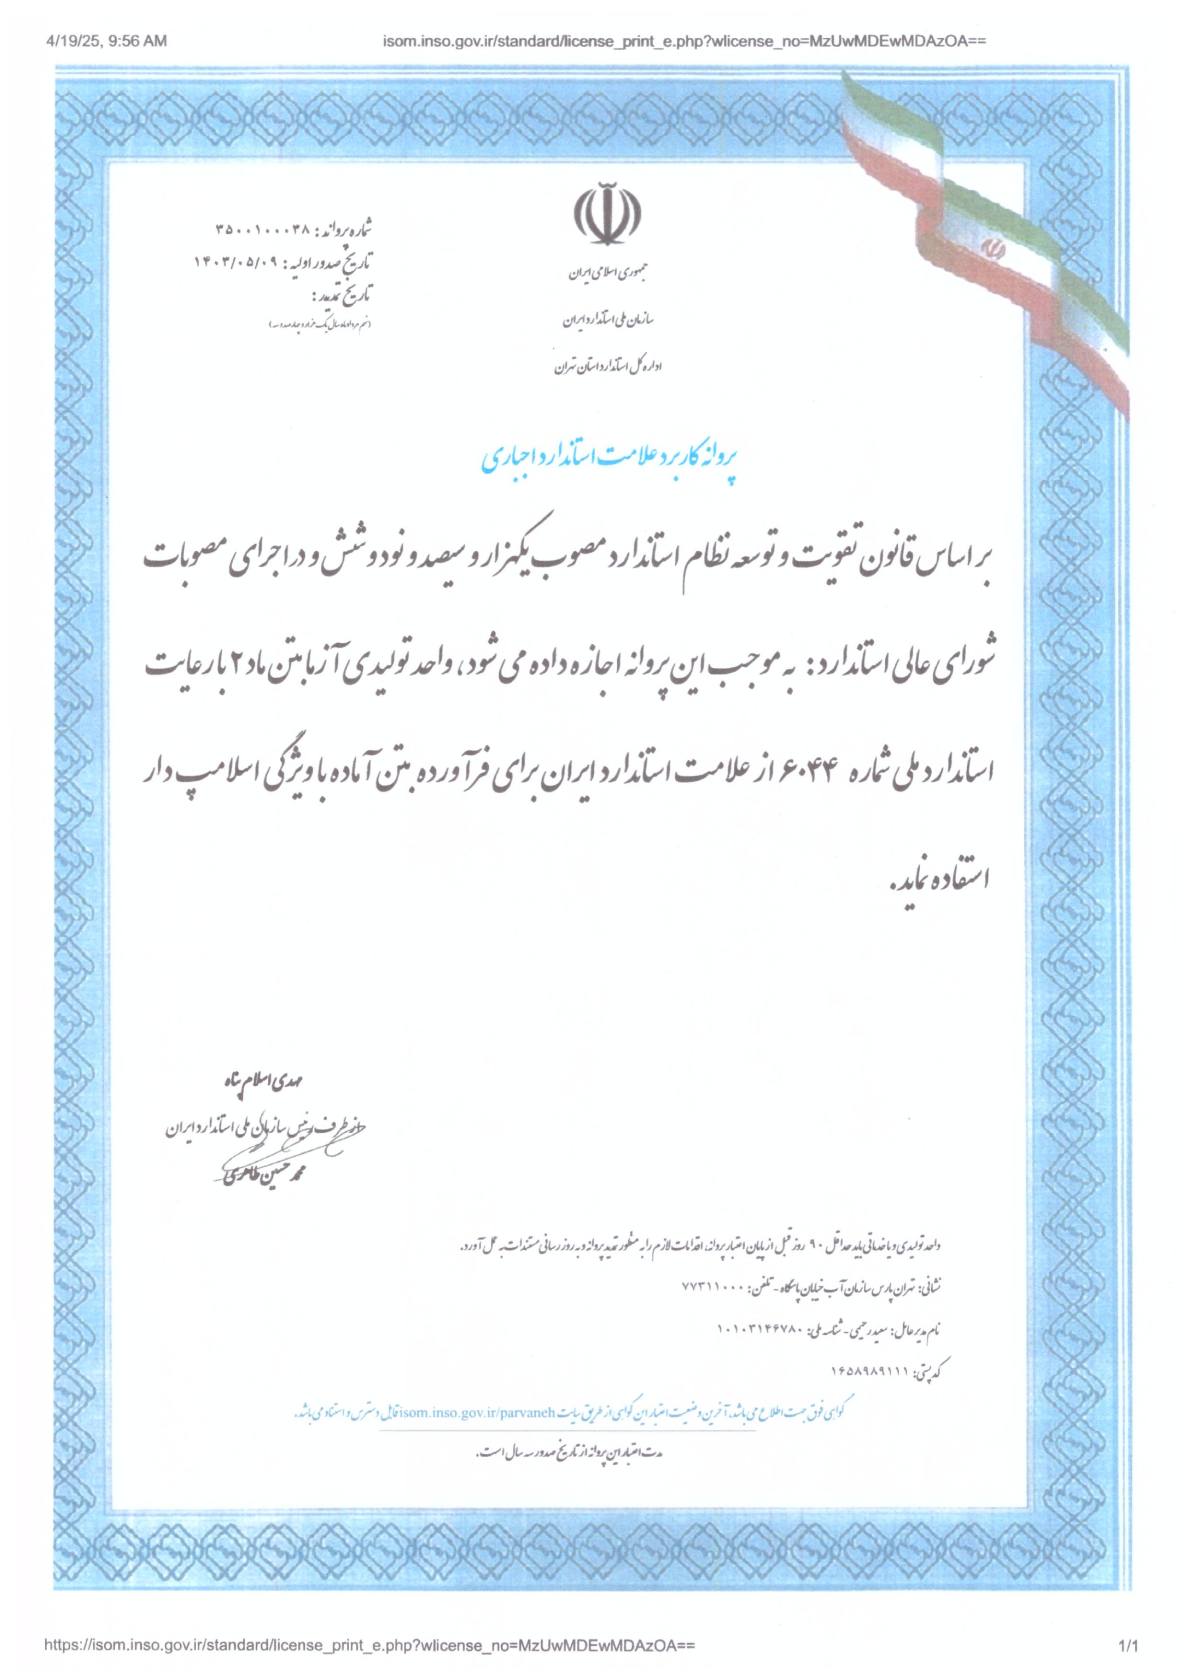 4/19/25, 9:56 AM
isom.inso.gov.ir/standard/license_print_e.php?wlicense_no=MzUwMDEwMDAzOA==
جمهوری اسلامی ایران
سازمان ملی استاندارد ایران
اداره کل استاندارد استان تهران
شماره پروانه : ۳۵۰۰۱۰۰۰۳۸
تاریخ صدور اولیه : ۱۴۰۳/۰۵/۰۹
تاریخ تمدید :
(نهم مرداد ماه سال یک هزار و چهارصد و سه)
پروانه کاربرد علامت استاندارد اجباری
بر اساس قانون تقویت و توسعه نظام استاندارد مصوب یکهزار و سیصد و نود و شش و در اجرای مصوبات
شورای عالی استاندارد: به موجب این پروانه اجازه داده می شود، واحد تولیدی آزما بتن ماد ۲ با رعایت
استاندارد ملی شماره ۶۰۴۴ از علامت استاندارد ایران برای فرآورده بتن آماده با ویژگی اسلامپ دار
استفاده نماید.
مهدی اسلام پناه
از طرف رئیس سازمان ملی استاندارد ایران
محمد حسین طاهری
واحد تولیدی و یا خدماتی باید حداقل ۹۰ روز قبل از پایان اعتبار پروانه، اقدامات لازم را به منظور تمدید پروانه و به روز رسانی مستندات به عمل آورد.
نشانی: تهران پارس سازمان آب خیابان پاسگاه - تلفن: ۷۷۳۱۱۰۰۰
نام مدیر عامل: سعید رحیمی - شناسه ملی: ۱۰۱۰۳۱۴۶۷۸۰
کد پستی: ۱۶۵۸۹۸۹۱۱۱
گواهی فوق جهت اطلاع می باشد، آخرین وضعیت اعتبار این گواهی از طریق سایت isom.inso.gov.ir/parvaneh قابل دسترس و استناد می باشد.
مدت اعتبار این پروانه از تاریخ صدور سه سال است.
https://isom.inso.gov.ir/standard/license_print_e.php?wlicense_no=MzUwMDEwMDAzOA==
1/1